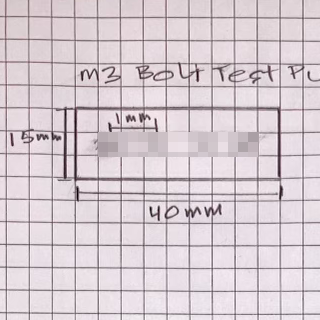 M3 Bolt Test
1mm
15mm
40mm